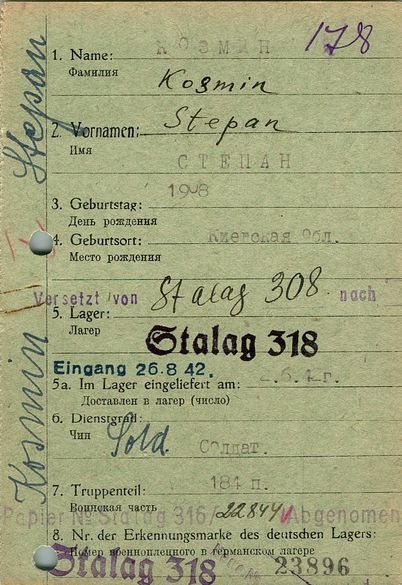 КОЗМИН 178
1. Name:
Фамилия
Kosmin
2. Vornamen: Stepan
Имя
СТЕПАН
1908
3. Geburtstag:
День рождения
4. Geburtsort: Киевская Обл.
Место рождения
Versetzt von Stalag 308 nach
5. Lager:
Лагерь
Stalag 318
Eingang 26.8 42.
5a. Im Lager eingeliefert am:
Доставлен в лагерь (число)
6. Dienstgrad: Sold.
Чин
Солдат.
7. Truppenteil: 184 п.
Воинская часть
Papier № Stalag 316/ 22844 Abgenomen
8. Nr. der Erkennungsmarke des deutschen Lagers:
Номер военнопленного в германском лагере
Stalag 318 23896
Kosmin Stepan